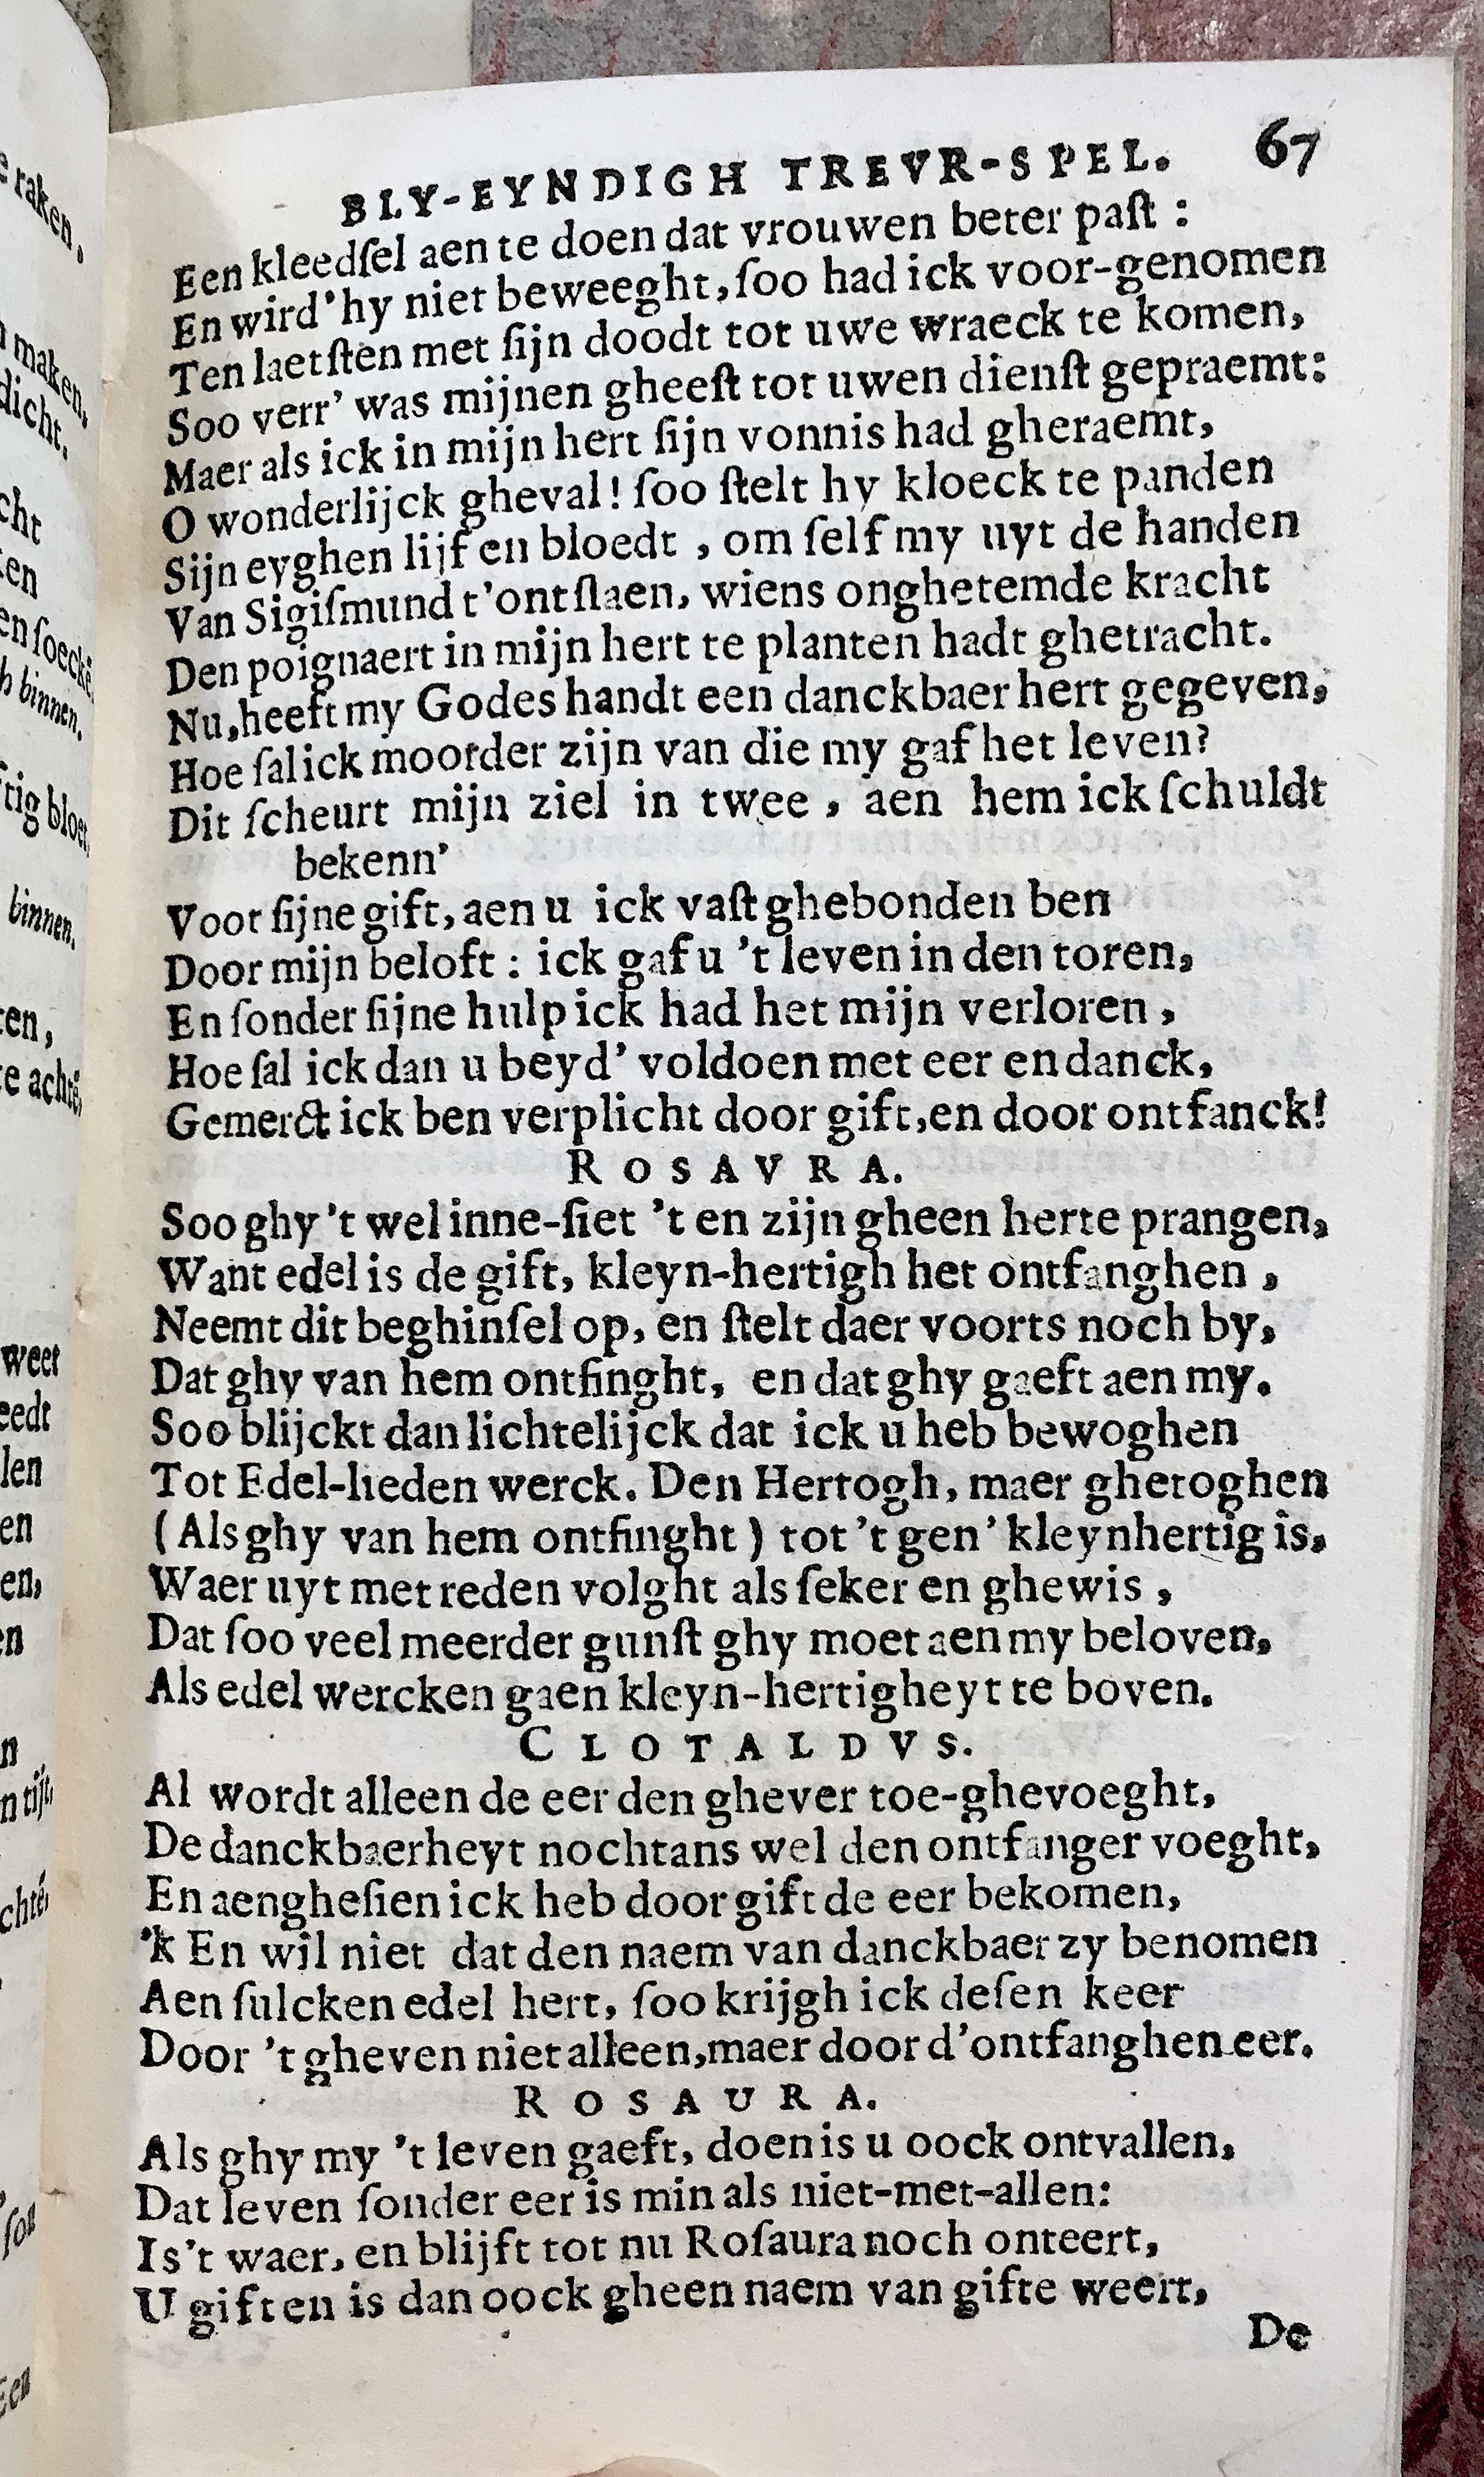 BLY-EYNDIGH TREVR-SPEL. 67
Een kleedſel aen te doen dat vrouwen beter paſt :
En wird' hy niet beweeght, ſoo had ick voor-genomen
Ten laetſten met ſijn doodt tot uwe wraeck te komen,
Soo verr' was mijnen gheeſt tot uwen dienſt gepraemt:
Maer als ick in mijn hert ſijn vonnis had gheraemt,
O wonderlijck gheval! ſoo ſtelt hy kloeck te panden
Sijn eyghen lijf en bloedt , om ſelf my uyt de handen
Van Sigiſmund t'ontſlaen, wiens onghetemde kracht
Den poignaert in mijn hert te planten hadt ghetracht.
Nu, heeft my Godes handt een danckbaer hert gegeven,
Hoe ſal ick moorder zijn van die my gaf het leven?
Dit ſcheurt mijn ziel in twee , aen hem ick ſchuldt
bekenn'
Voor ſijne gift, aen u ick vaſt ghebonden ben
Door mijn beloft : ick gaf u 't leven in den toren,
En ſonder ſijne hulp ick had het mijn verloren ,
Hoe ſal ick dan u beyd' voldoen met eer en danck,
Gemerct ick ben verplicht door gift, en door ontfanck!
ROSAVRA.
Soo ghy 't wel inne-ſiet 't en zijn gheen herte prangen,
Want edel is de gift, kleyn-hertigh het ontfanghen ,
Neemt dit beghinſel op, en ſtelt daer voorts noch by,
Dat ghy van hem ontfinght, en dat ghy gaeft aen my.
Soo blijckt dan lichtelijck dat ick u heb bewoghen
Tot Edel-lieden werck. Den Hertogh, maer ghetoghen
(Als ghy van hem ontfinght) tot 't gen' kleynhertig is,
Waer uyt met reden volght als ſeker en ghewis ,
Dat ſoo veel meerder gunſt ghy moet aen my beloven,
Als edel wercken gaen kleyn-hertigheyt te boven.
CLOTALDVS.
Al wordt alleen de eer den ghever toe-ghevoeght,
De danckbaerheyt nochtans wel den ontfanger voeght,
En aengheſien ick heb door gift de eer bekomen,
'k En wil niet dat den naem van danckbaer zy benomen
Aen ſulcken edel hert, ſoo krijgh ick deſen keer
Door 't gheven niet alleen, maer door d'ontfanghen eer.
ROSAURA.
Als ghy my 't leven gaeft, doen is u oock ontvallen,
Dat leven ſonder eer is min als niet-met-allen:
Is't waer, en blijft tot nu Roſaura noch onteert,
U giften is dan oock gheen naem van gifte weert,
De